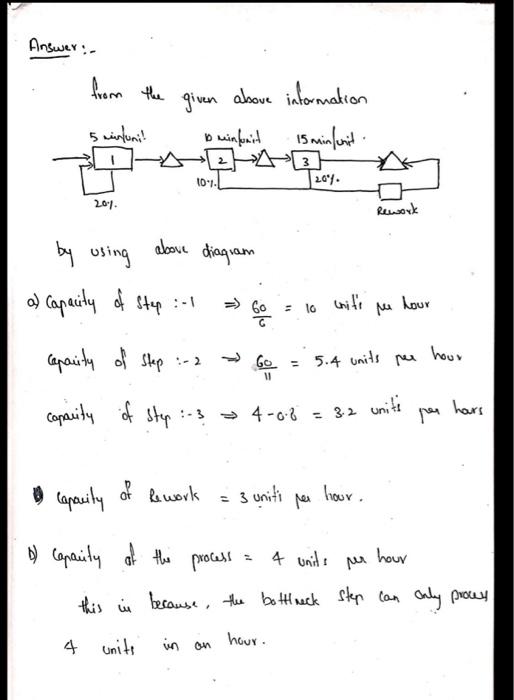 Answer :-
from the given above information
5 min/unit 10 min/unit 15 min/unit.
1 2 3
10%. 20%.
20%. Rework
by using above diagram
a) Capacity of Step :- 1 ⇒ 60/6 = 10 units per hour
Capacity of Step :- 2 ⇒ 60/11 = 5.4 units per hour
Capacity of Step :- 3 ⇒ 4-0.8 = 3.2 units per hours
Capacity of Rework = 3 units per hour.
b) Capacity of the process = 4 units per hour
this is because, the bottleneck step can only process
4 units in an hour.